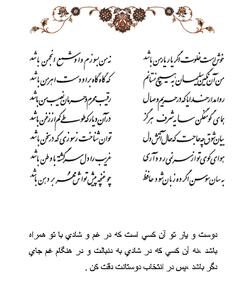 خوش است خلوت اگر یار یار من باشد نه من بسوزم و او شمع انجمن باشد
من آن نگین سلیمان به هیچ نستانم که گاه گاه بر او دست اهرمن باشد
روا مدار خدایا که در حریم وصال رقیب محرم و حرمان نصیب من باشد
همای گو مفکن سایه شرف هرگز در آن دیار که طوطی کم از زغن باشد
بیان شوق چه حاجت که حال آتش دل توان شناخت ز سوزی که در سخن باشد
هوای کوی تو از سر نمی رود آری غریب را دل سرگشته با وطن باشد
به سان سوسن اگر ده زبان شود حافظ چو غنچه پیش تواش مهر بر دهن باشد
دوست و يار تو آن كسي است كه در غم و شادي با تو همراه
باشد ،نه آن كسي كه در شادي به دنبالت و در هنگام غم جاي
دگر باشد ،پس در انتخاب دوستانت دقت كن .